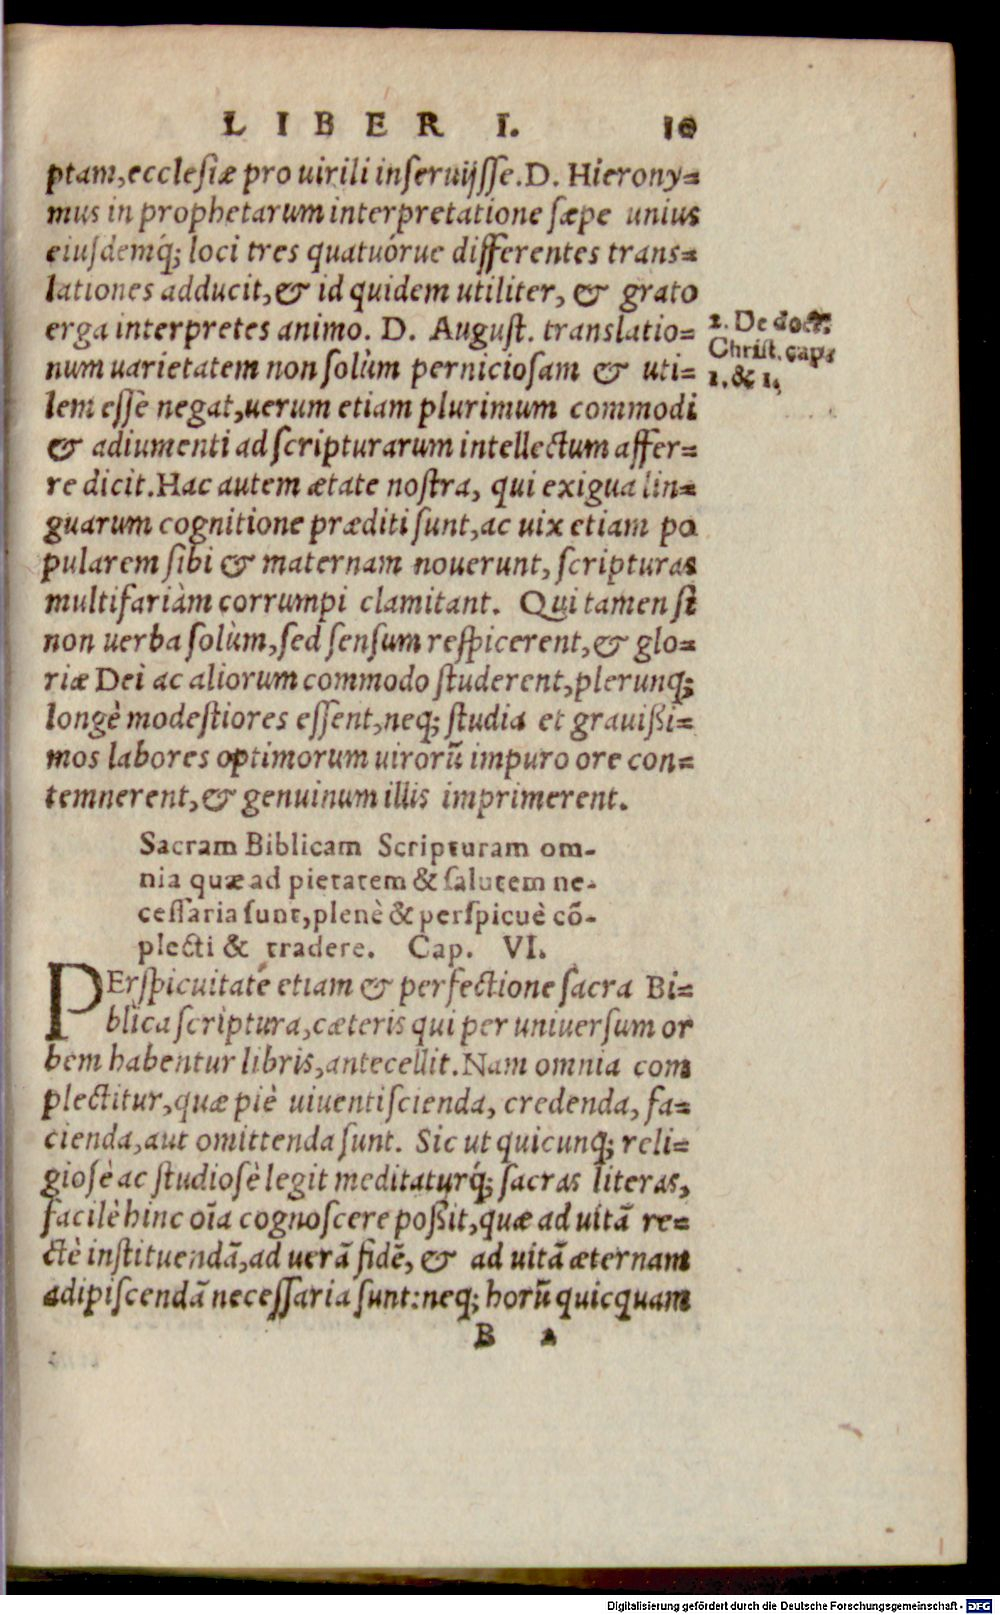 LIBER I. 10
ptam, ecclesiæ pro uirili inseruijsse. D. Hierony=
mus in prophetarum interpretatione sæpe unius
eiusdemq́; loci tres quatuórue differentes trans=
lationes adducit, & id quidem utiliter, & grato
erga interpretes animo. D. August. translatio=
num uarietatem non solùm perniciosam & uti=
lem esse negat, uerum etiam plurimum commodi
& adiumenti ad scripturarum intellectum affer=
re dicit. Hac autem ætate nostra, qui exigua lin=
guarum cognitione præditi sunt, ac uix etiam po
pularem sibi & maternam nouerunt, scripturas
multifariàm corrumpi clamitant. Qui tamen si
non uerba solùm, sed sensum respicerent, & glo=
riæ Dei ac aliorum commodo studerent, plerunq;
longè modestiores essent, neq; studia et grauißi=
mos labores optimorum uirorũ impuro ore con=
temnerent, & genuinum illis imprimerent.
2. De doct.
Christ. cap.
1. & 1.
Sacram Biblicam Scripturam om-
nia quæ ad pietatem & salutem ne-
cessaria sunt, plenè & perspicuè cõ-
plecti & tradere. Cap. VI.
PErspicuitate etiam & perfectione sacra Bi=
blica scriptura, cæteris qui per uniuersum or
bem habentur libris, antecellit. Nam omnia com
plectitur, quæ piè uiuenti scienda, credenda, fa=
cienda, aut omittenda sunt. Sic ut quicunq; reli=
giosè ac studiosè legit meditaturq́; sacras literas,
facilè hinc oĩa cognoscere poßit, quæ ad uitã re=
ctè instituendã, ad uerã fidẽ, & ad uitã æternam
adipiscendã necessaria sunt: neq; horũ quicquam
B 2
Digitalisierung gefördert durch die Deutsche Forschungsgemeinschaft - DFG